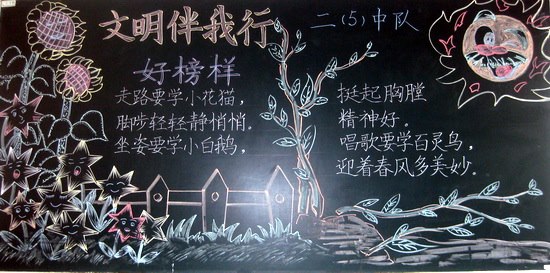 文明伴我行
二(5)中队
好榜样
走路要学小花猫，
脚步轻轻静悄悄.
坐姿要学小白鹅，
挺起胸膛
精神好.
唱歌要学百灵鸟，
迎着春风多美妙.